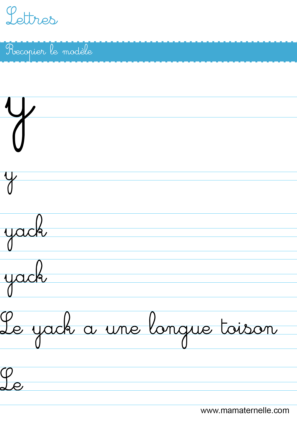 Lettres
Recopier le modèle
y
y
yack
yack
Le yack a une longue toison
Le
www.mamaternelle.com